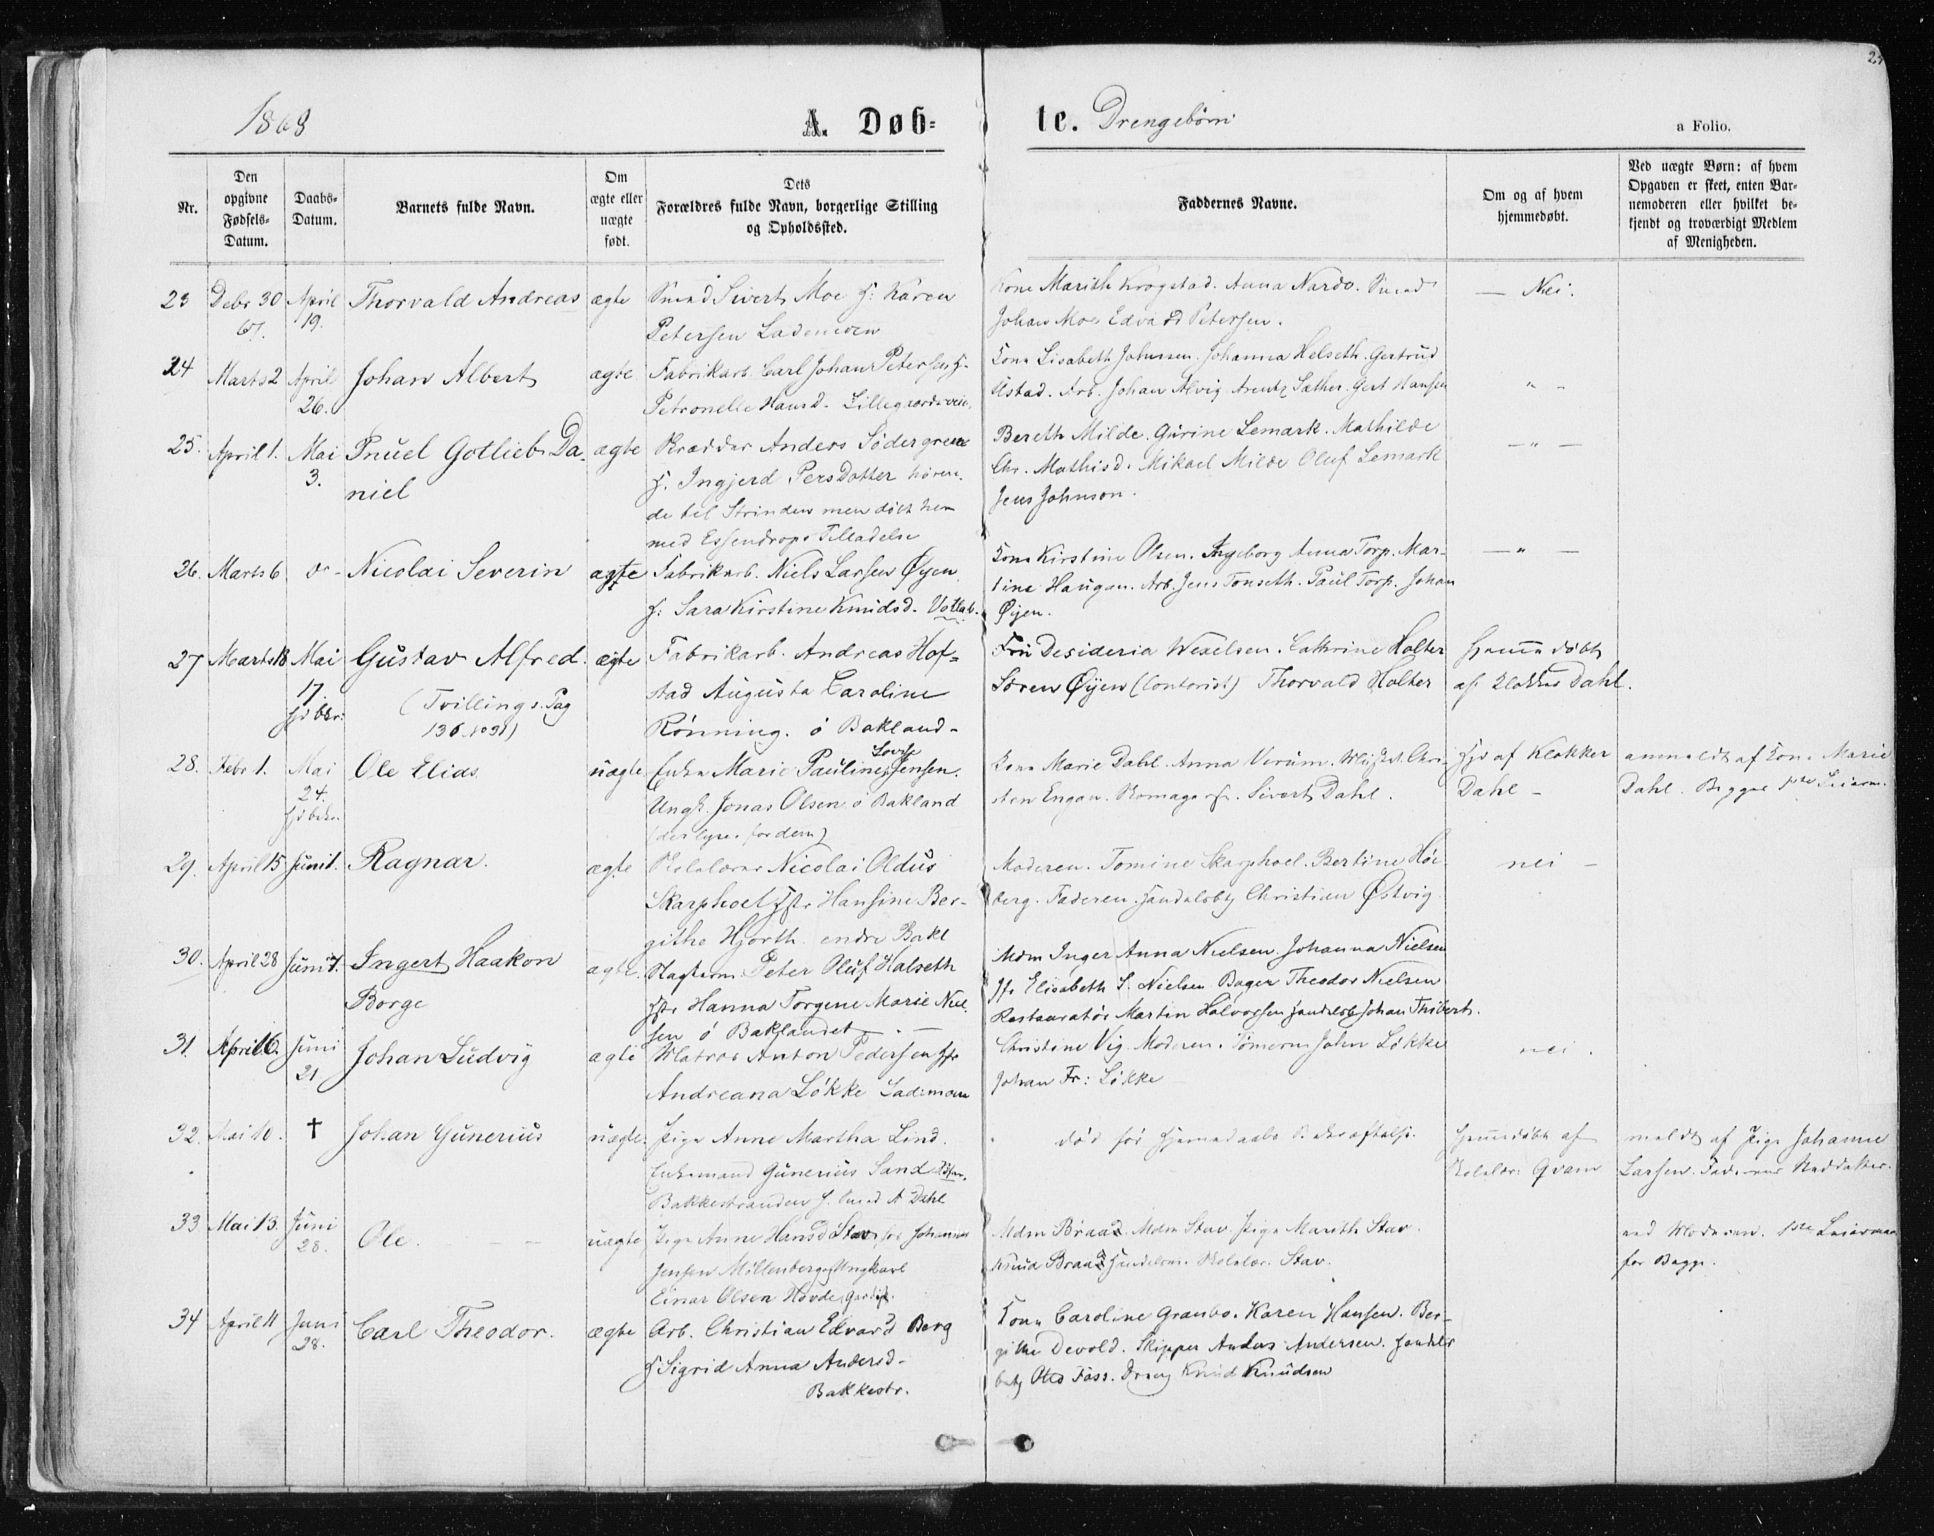 1868
A. Døb=
te. Drengebørn
a Folio.
Nr.
Den opgivne Fødsels-Datum.
Daabs-Datum.
Barnets fulde Navn.
Om ægte eller uægte født.
Dets Forældres fulde Navn, borgerlige Stilling og Opholdssted.
Faddernes Navne.
Om og af hvem hjemmedøbt.
Ved uægte Børn: af hvem Opgaven er skeet, enten Barnemoderen eller hvilket bekjendt og troværdigt Medlem af Menigheden.
23 Debr 30 67. April 19. Thorvald Andreas ægte
Smed Sivert Moe H: Karen
Petersen Lademoen
Kone Marith Krogstad. Anna Nardo. Smed
Johan Moe Edvard Petersen.
— Nei.
24 Marts 2 April 26. Johan Albert ægte
Fabrikarb. Carl Johan Petersen H.
Petronelle Hansd. Lillegaardsveien.
Kone Lisabeth Johnsen. Johanna Helseth. Gertrud
Ustad. Arb. Johan Alvig. Arentz Sæther. Gert Hansen
" -
25. April 1. Mai 3. Pnuel Gotlieb Da-
niel
ægte
Skrædder Anders Södergreen
H. Ingjerd PersDatter hören-
de til Strinden men døbt her
med Essendrops Tilladelse
Bereth Milde. Gurine Lemark. Mathilde
Chr. Mathisd. Mikael Milde Oluf Lemark
Jens Johnson.
— " —
26. Marts 6 do - Nicolai Severin ægte
Fabrikarb. Niels Larsen Øyen
H: Sara Kirstine Knudsd. Vollab.
Kone Kirstine Olsen. Ingeborg Anna Torp. Mar-
tine Haugan. Arb. Jens Tonseth. Paul Torp. Johan
Øyen.
— " —
27 Marts 18 Mai 17 hjd bkr: Gustav Alfred. ægte
(Tvilling s. Pag
136 no 31)
Fabrikarb. Andreas Hof=
stad Augusta Caroline
Rönning. ö Bakland -
Frü Desideria Wexelsen. Cathrine Holter
Sören Øyen (Contorist) Thorvald Holter
Hjemmedöbt
af: Klokker Dahl.
28. Febr 1. Mai 24. Hjd bekr. Ole Elias uægte
Enke Marie Pauline Lovise Jensen.
Ungk. Jonas Olsen ö Bakland
(der lyses for dem)
Kone Marie Dahl Anna Verum. Chri-
sten Engan. Sivert Dahl.
Hjd af Klokker
Dahl -
anmeldt af Kone Marie
Dahl. Begges 1ste Leierm.
29. April 15 Juni 1. Ragnar. ægte
Skolelærer Nicolai Oldus
Skarphoel Hstr Hansine Ber-
githe Hjorth. endre Bakl
Moderen. Tomine Skarphoel. Bertine Höi-
berg. Faderen. Handelsbtj Christian Østvig.
nei -
30. April 28 Juni 7. Ingert Haakon
Borge
ægte.
Peter Oluf Halseth
Hstr Hanna Torgine Marie Niel-
sen ö Baklandet —
Mdm Inger Anna Nielsen. Johanna Nielsen
Elisabeth S. Nielsen Bager Theodor Nielsen
Restauratör Martin Halvorsen Handelsb Johan Thibert.
31. April 16. Juni 21 Johan Ludvig ægte
Matros Anton Pedersen Hstr
Andreana Løkke Lademoen
Christine Vig. Moderen. Tömerm John Løkke
Johan Fr: Løkke
nei.
32. Mai 10. † Johan Gunerius uægte.
Pige Anne Martha Lind.
Enkemand Gunerius Sand
Bakkestranden h. Smed A Dahl
död för Hjemmedaabs Bekræftelse.
Hjemmedöbt af
Skolelær: Qvam
meldt af Pige Johanne
Larsen.
33 Mai 13. Juni 28. Ole. uægte
Pige Anne Hansd Stav for Johannes
Jensen Möllenberg Ungkarl
Einar Olsen Hovde
Mdm Braad. Mdm Stav. Pige Marith Stav.
Knud Braad Handelsm. Skolelær. Stav.
ved Moderen. 1ste Leiermaal
for Begge.
34 April 11 Juni 28. Carl Theodor. ægte
Arb. Christian Edvard Berg
H Sigrid Anna Andersd -
Bakkestr.
Kone Caroline Granbo. Karen Hansen. Ber-
githe Devold. Skipper Anders Andersen. Handels
betj Otto Foss. Dreng Knud Knudsen